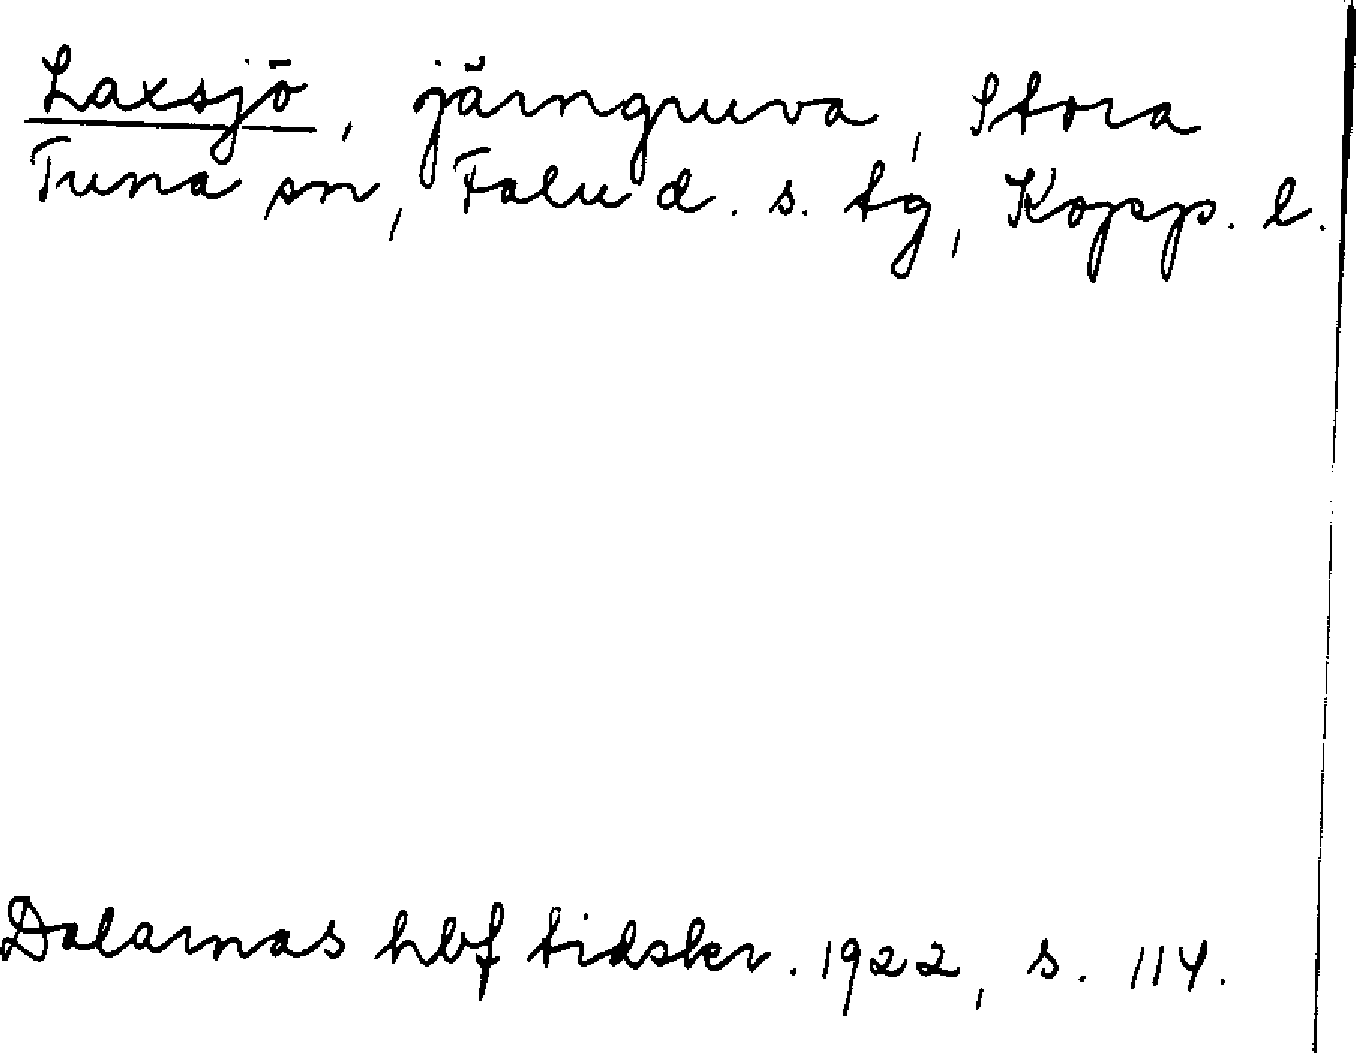 Laxsjö, järngruva, Stora
Tuna sn, Falu d. s. tg, Kopp. l.
Dalarnas hbf tidskr. 1922, s. 114.